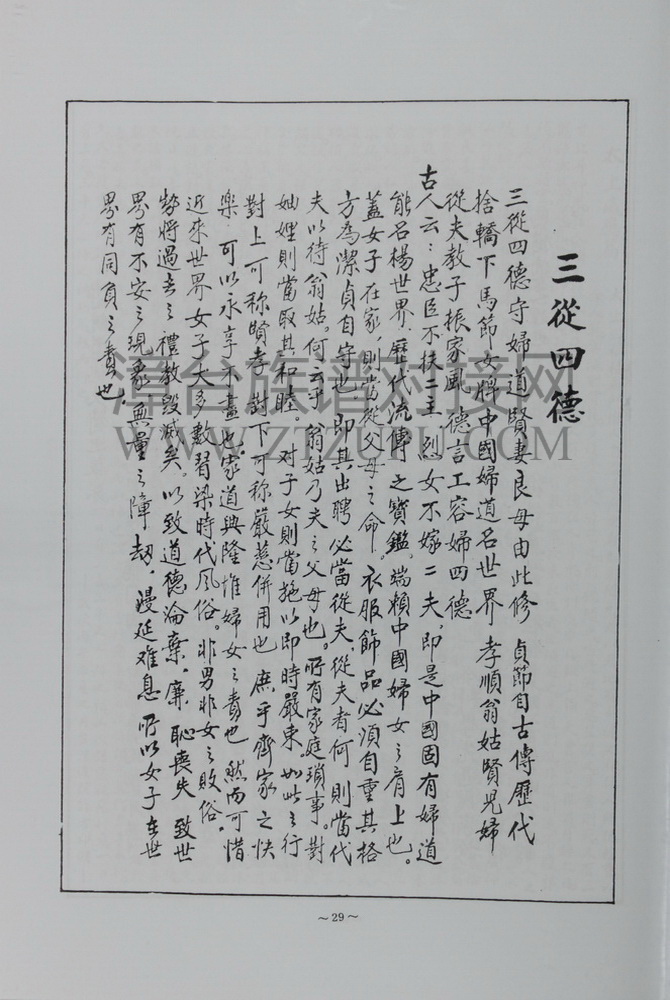 三從四德
三從四德守婦道賢妻良母由此修 貞節自古傳歷代
捨轎下馬節女牌中國婦道名世界 孝順翁姑賢兒婦
從夫教子振家風 德言工容婦四德
古人云：忠臣不扶二主，烈女不嫁二夫，即是中國固有婦道
能名楊世界，歷代流傳之寶鑑，端賴中國婦女之肩上也。
蓋女子在家，則當從父母之命，衣服飾品必須自重其格
方為潔貞自守也，即其出聘必當從夫，從夫者何 則當代
夫以待翁姑。何云乎 翁姑乃夫之父母也。所有家庭瑣事。對
妯娌則當取其和睦。對子女則當施以即時嚴束，如此之行
對上可称賢孝 對下可称嚴慈併用也 庶乎齊家之快
樂 可以永享不盡也 家道興隆惟婦女之責也 然而可惜
近來世界女子大多數習染時代風俗。非男非女之敗俗。
勢將過去之禮教毀滅矣。以致道德淪棄，廉恥喪失 致世
界有不安之現象 無量之障劫，漫延难息 所以女子在世
界有同負之責也
~29~
漳台族谱对接网
WWW.ZTZUPU.COM